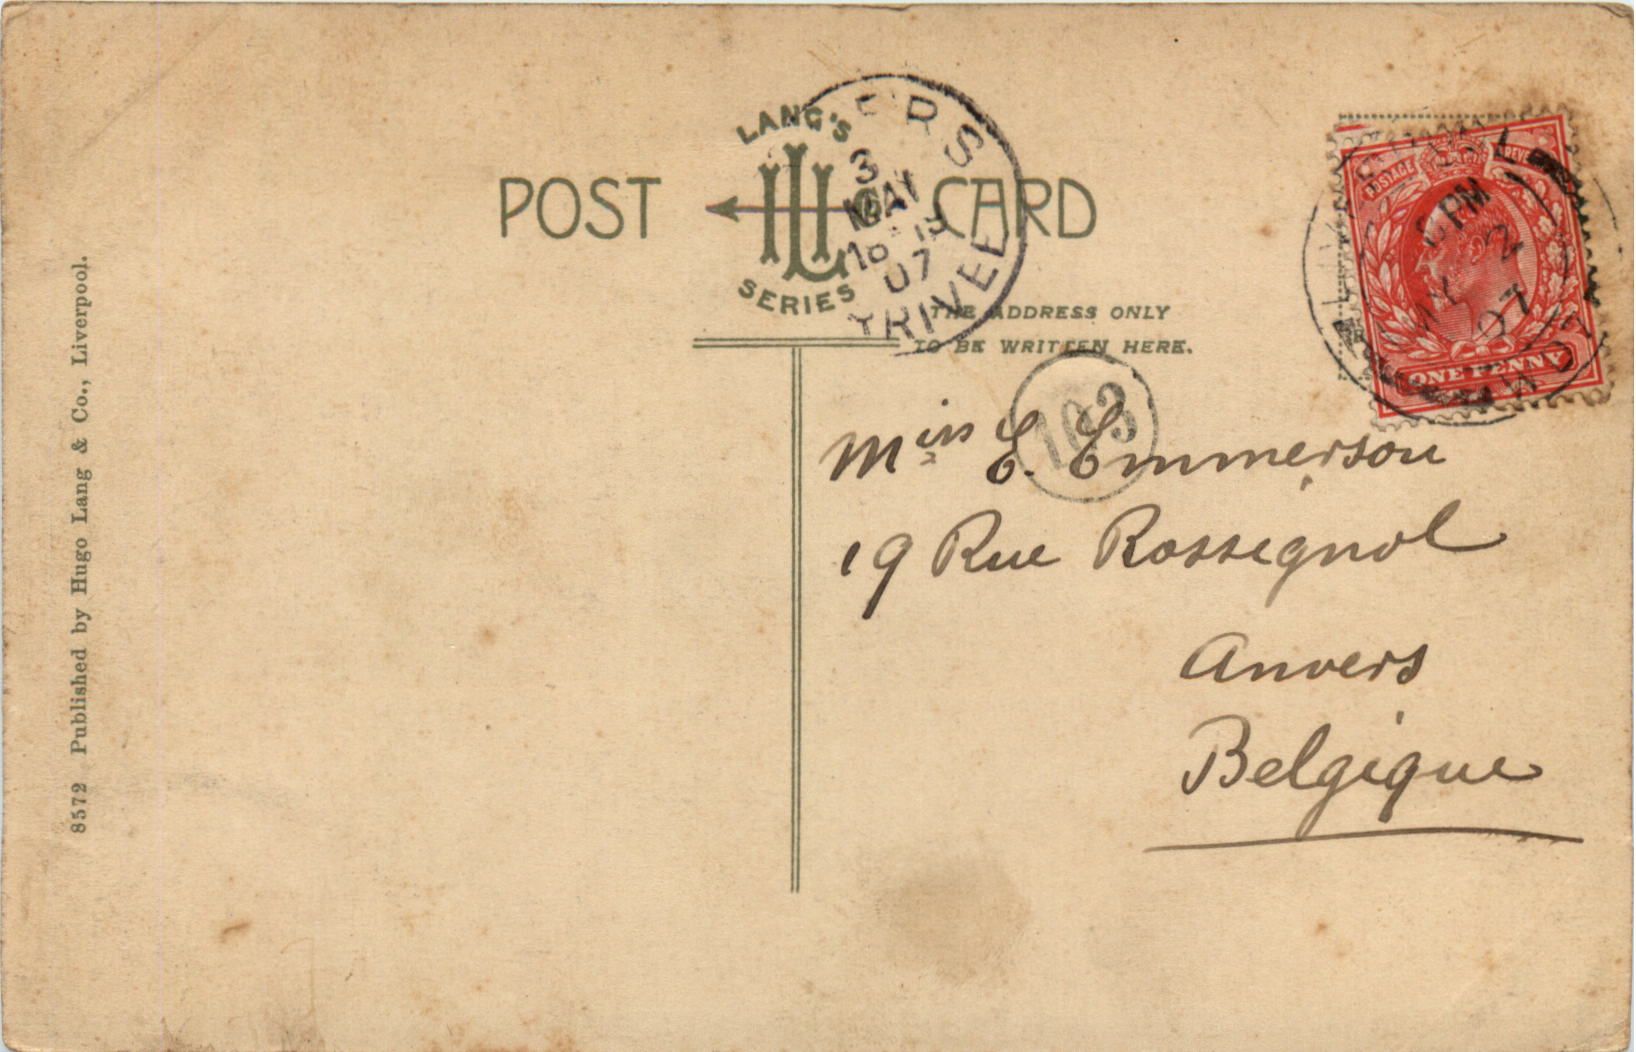 POST CARD
LANG'S
SERIES
ERS
3
MAI
18-19
07
THE ADDRESS ONLY
TO BE WRITTEN HERE.
POSTAGE REVENUE
LIVERPOOL
PM
MY 2
07
ONE PENNY
103
Miss E. Emmerson
19 Rue Rossignol
Anvers
Belgique
8572 Published by Hugo Lang & Co., Liverpool.